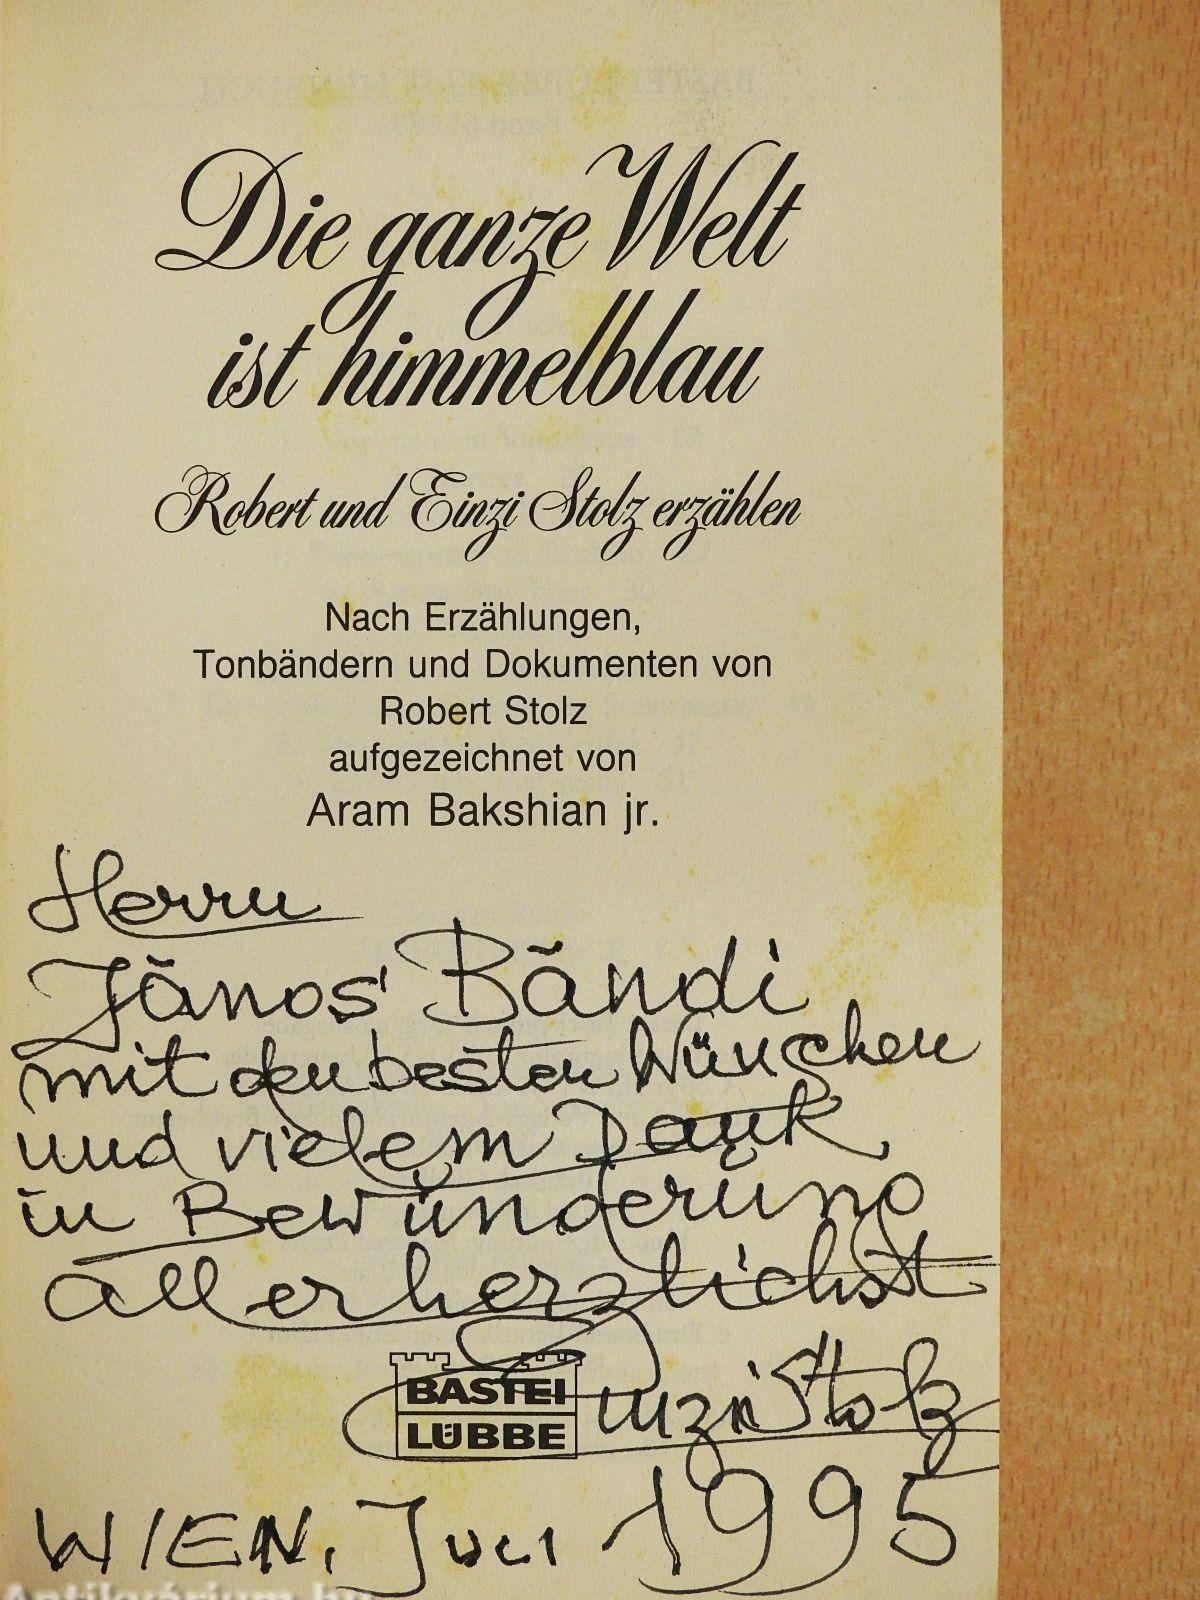 Die ganze Welt
ist himmelblau
Robert und Einzi Stolz erzählen
Nach Erzählungen,
Tonbändern und Dokumenten von
Robert Stolz
aufgezeichnet von
Aram Bakshian jr.
Herrn
János Bándi
mit den besten Wünschen
und vielem Dank
in Bewunderung
allerherzlichst
Einzi Stolz
BASTEI
LÜBBE
WIEN, Juli 1995
Antikvárium.hu